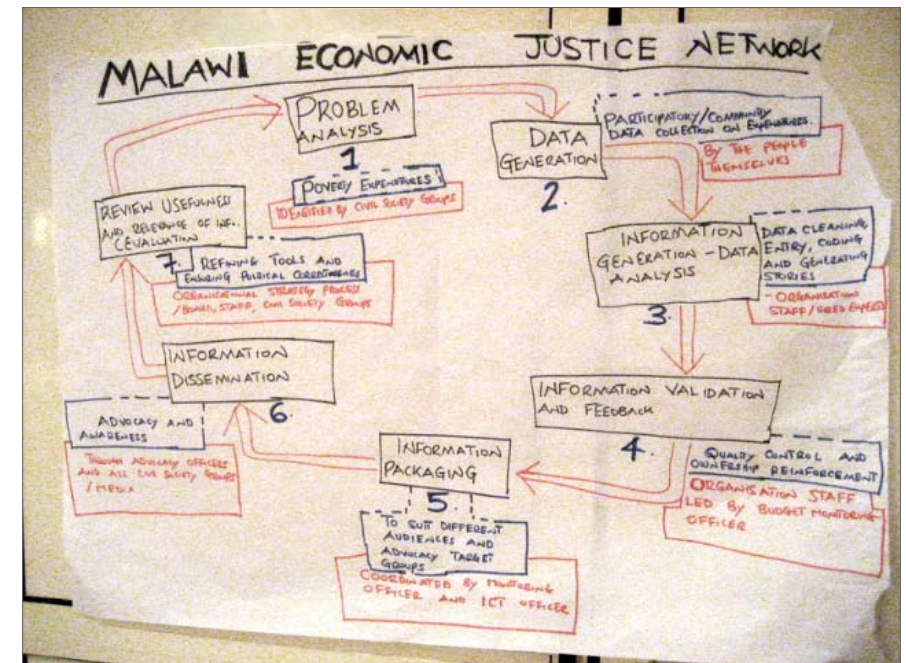 MALAWI ECONOMIC JUSTICE NETWORK
PROBLEM
ANALYSIS
1
POVERTY EXPENDITURES
IDENTIFIED BY CIVIL SOCIETY GROUPS
DATA
GENERATION
2.
PARTICIPATORY/COMMUNITY
DATA COLLECTION ON EXPENDITURES.
BY THE PEOPLE
THEMSELVES
INFORMATION
GENERATION - DATA
ANALYSIS
3.
DATA CLEANING
ENTRY, CODING
AND GENERATING
STORIES
- ORGANISATION
STAFF/HIRED EXPERTS
INFORMATION VALIDATION
AND FEEDBACK
4.
QUALITY CONTROL AND
OWNERSHIP REINFORCEMENT
ORGANISATION STAFF
LED BY BUDGET MONITORING
OFFICER
INFORMATION
PACKAGING
5.
TO SUIT DIFFERENT
AUDIENCES AND
ADVOCACY TARGET
GROUPS
COORDINATED BY MONITORING
OFFICER AND ICT OFFICER
INFORMATION
DISSEMINATION
6.
ADVOCACY AND
AWARENESS
THROUGH ADVOCACY OFFICERS
AND ALL CIVIL SOCIETY GROUPS
/MEDIA
REVIEW USEFULNESS
AND RELEVANCE OF INFO.
(EVALUATION
7.
REFINING TOOLS AND
ENSURING POLITICAL CORRECTNESS
ORGANISATIONAL STRATEGY PROCESS
/BOARD, STAFF, CIVIL SOCIETY GROUPS